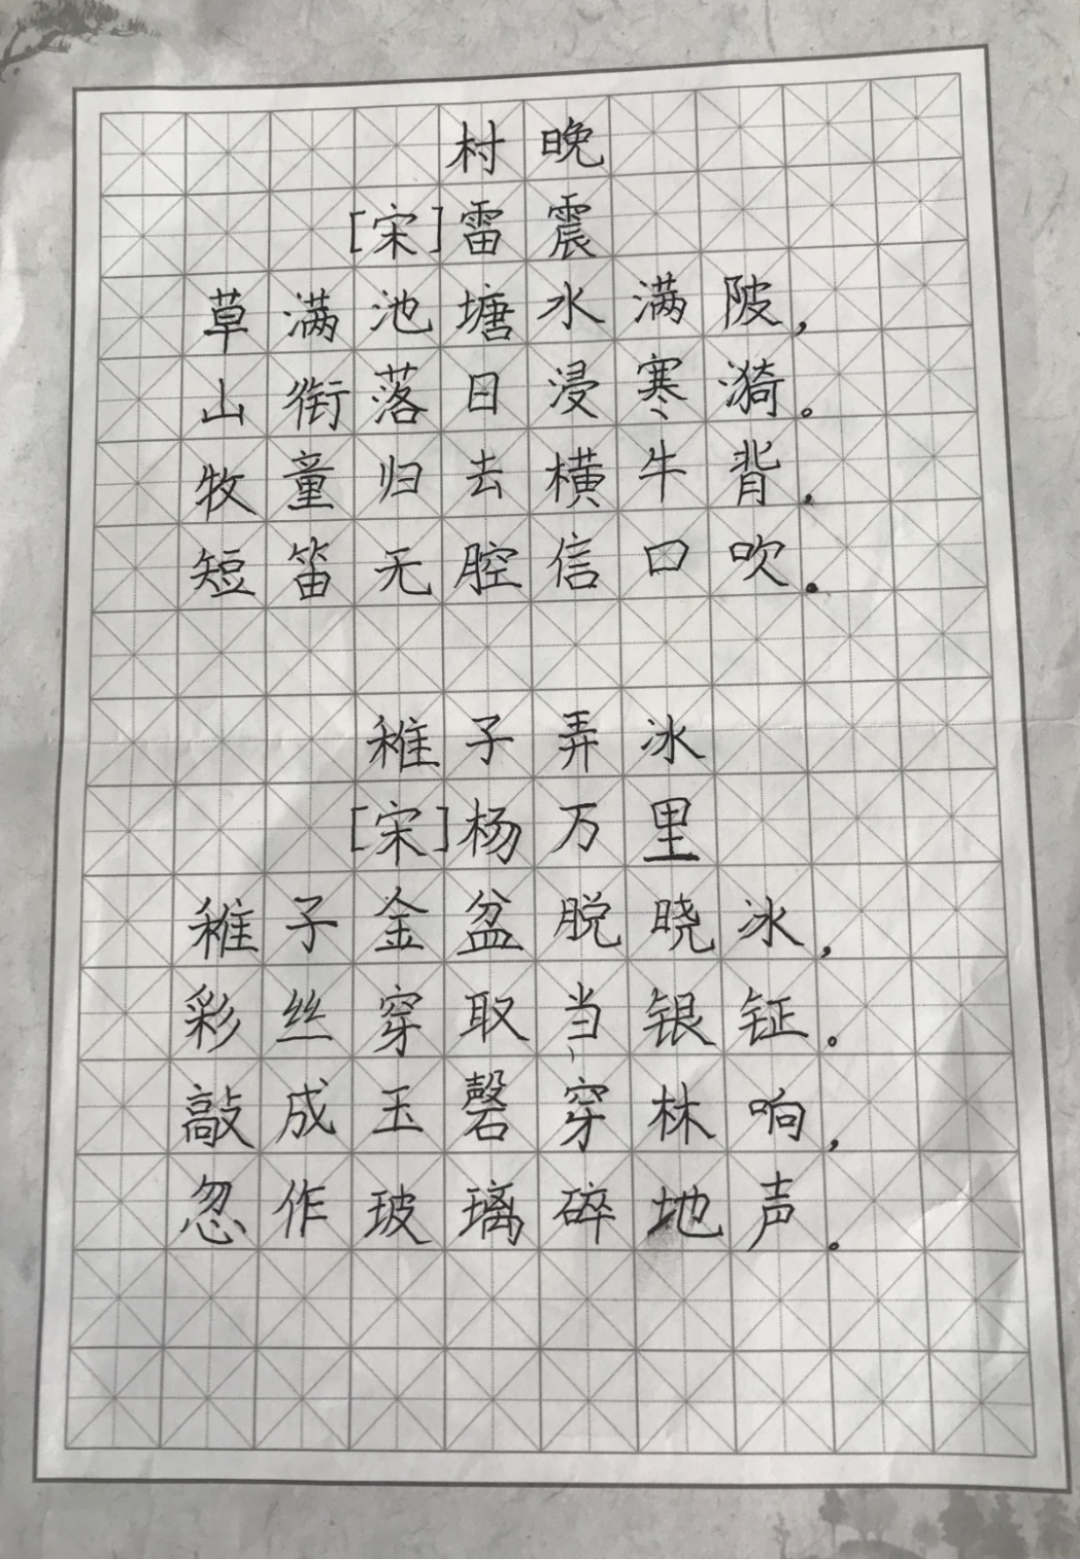 村晚
[宋]雷震
草满池塘水满陂，
山衔落日浸寒漪。
牧童归去横牛背，
短笛无腔信口吹。
稚子弄冰
[宋]杨万里
稚子金盆脱晓冰，
彩丝穿取当银钲。
敲成玉磬穿林响，
忽作玻璃碎地声。